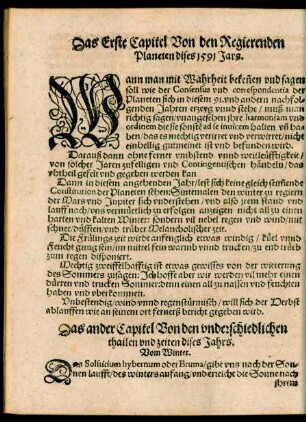 Das Erste Capitel Von den Regierenden
Planeten dises 1591 Jars.
Wann man mit Wahrheit bekeñen vnd sagen
soll wie der Consensus vnd correspondentia der
Planeten sich in disem 91. vnd andern nachfol-
genden Jahren erzeyg vnnd stehe / muß man
richtig sagen / vnangesehen ihre harmoniam vnd
ordinem die sie sonst ad se inuicem halten vñ ha-
ben / das es mechtig verirret vnd verwirret / nicht
einhellig gutmeinet ist vnd befunden wird.
Darauß dann ohne ferner vmbstend vnnd weitleüfftigkeit /
von solcher Jaren zufelligen vnd Contingenischen händeln / das
vbtheil gefelt vnd gegeben werden kan
Dann in diesem angehenden Jahr / lest sich keine gleich stiffende
Constitution der Planeten sehen Sintemalen den winter zu regiern
der Mars vnd Jupiter sich vnderstehen / vnd also jrem stand vnd
lauff nach / vns vermütlich zu erfolgen anzeigen nicht all zu einen
harten vnd kalten Winter: sondern vil nebel regen vnd wind / mit
schnee / düfften / vnd trüber Melancholischer zeit.
Die Frülings zeit wird anfenglich etwas windig / küel vnnd
feucht gnug sein / im mittel fein warmb vnnd trucken / zu end trüb
zum regen disponiert.
Mechtig zweiffelhafftig ist etwas gewisses von der witterung
des Sommers zusagen: Ich hoffe aber wir werden vil mehr einen
dürren vnd trucken Sommer: denn einen all zu nassen vnd feuchten
haben vnd vberkommen.
Vnbestendig / wind vnnd regenstürmisch / will sich der Herbst
ablauffen wie an seinem ort ferners bericht gegeben wird.
Das ander Capitel Von den vnderschiedlichen
thailen vnd zeiten dises Jahrs.
Vom Winter.
Das Solsticium hybernum oder Bruma / gibt vns nach der Son-
nen laufft / des winters anfang / vnd erreicht die Sonne nach
ihrem